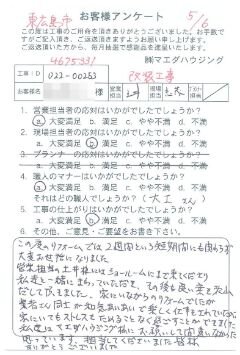 東広島市
お客様アンケート
5/6
この度は工事のご用命を頂きありがとうございました。お手数で
すがご記入頂き、ご返送頂きますようお願い申し上げます。
ご返送頂いた方から、毎月抽選で感謝品を進呈いたします。
㈱マエダハウジング
工事ID
022-00253
改装工事
お客様名
様
営業担当
現場担当
1. 営業担当者の応対はいかがでしたでしょうか?
ⓐ 大変満足 b 満足 c やや不満 d 不満
2. 現場担当者の応対はいかがでしたでしょうか?
ⓐ 大変満足 b 満足 c やや不満 d 不満
3. プランナーの応対はいかがでしたでしょうか?
a 大変満足 b 満足 c やや不満 d 不満
4. 職人のマナーはいかがでしたでしょうか?
ⓐ 大変満足 b 満足 c やや不満 d 不満
それはどの職人でしょう?(大工さん)
5. 工事の仕上がりはいかがでしたでしょうか?
ⓐ 大変満足 b 満足 c やや不満 d 不満
6. その他、ご意見、ご要望をお書き下さい。
この度のリフォームでは2週間という短期間にも関わらず
大変お世話になりました
営業担当の土井様にはショールームにまで来てくださり
私達と一緒にまわっていただき、その後も良い案を沢山
だして頂きました。家にいながらのリフォームでしたが
家にいてもストレスもたまることなく過ごすことができました
ありがとうございました